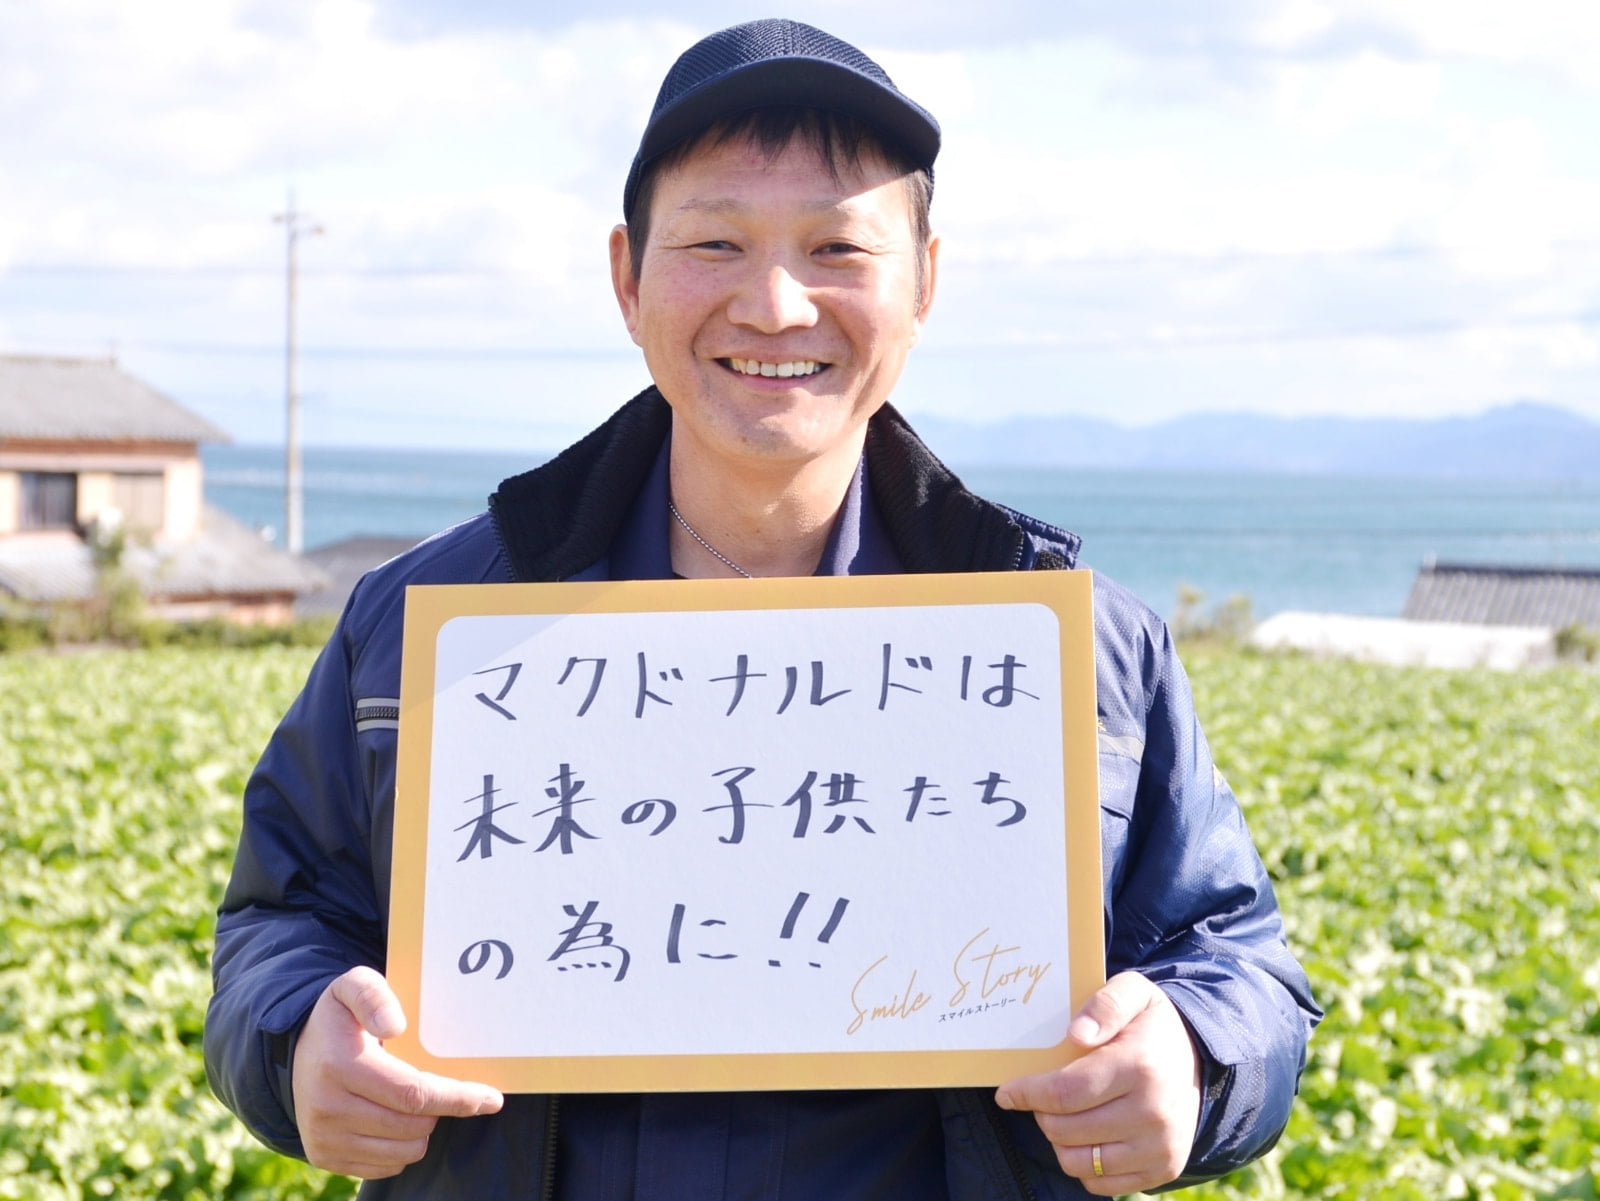 マクドナルドは
未来の子供たち
の為に!!
Smile Story
スマイルストーリー